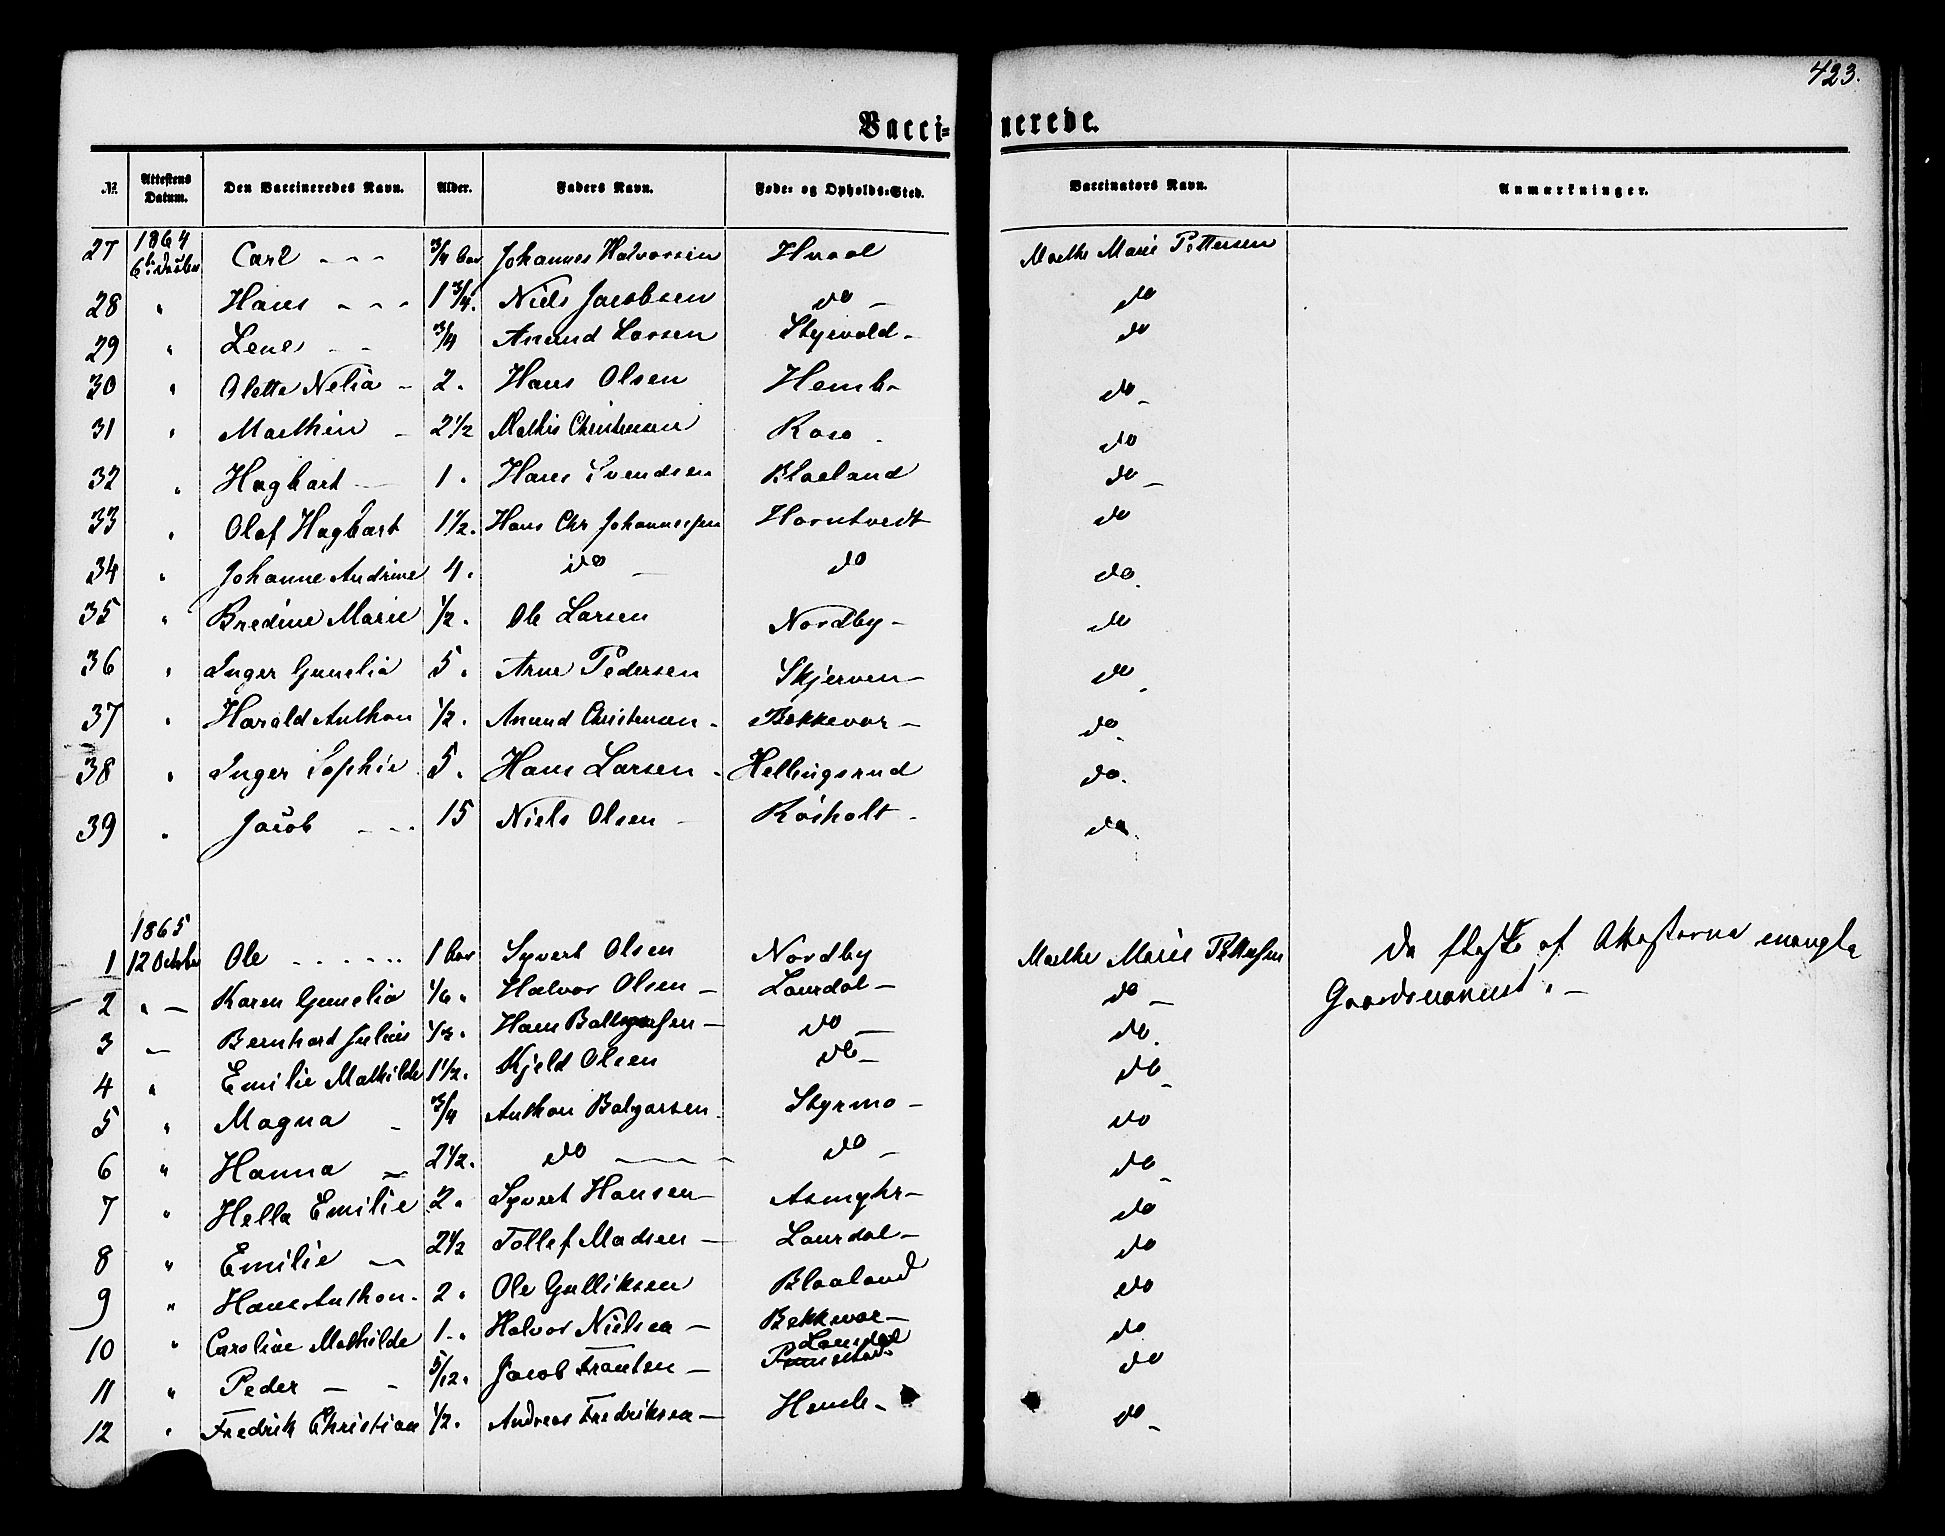 423.
Vaccinerede.
№ Attestens Datum. Den Vaccineredes Navn. Alder. Faders Navn. Føde- og Opholds-Sted. Vaccinators Navn. Anmærkninger.
1864
27 6 Carl - - - 3/4 Johannes Halvorsen Hvaal Marthe Marie Pettersen
28 " Hans - - - 1 3/4. Niels Jacobsen do - do
29 " Lene - - 3/4 Anund Larsen Styrvold - do
30 " Olette Nelia - 2. Hans Olsen Hemb - do -
31 " Mathen - 2 1/2 Mathis Christensen do
32 " Hagbart - 1. Hans Svendsen Blaeland do -
33 " Olaf Hagbart 1 1/2. Hans Chr Johannessen Horntvedt do
34 " Johanne Andrine 4. do - do do.
35 " Bredine Marie 1/2. Ole Larsen Nordby - do
36 " Inger Gunelia 5. Arne Pedersen Skjerven - do.
37 " Harald Anthon 1/2. Anund Christensen - Bekkevar - do.
38 " Inger Sophie 5. Hans Larsen - Hellingsrud do.
39 " Jacob - - - 15 Niels Olsen - Rosholt - do.
1865
1 12 October Ole - - - - - - 1 Aar Syvert Olsen Nordby Marthe Marie Pettersen Da fleste af Attesterne mangle
2 " - Karen Gunelia 1/6. Halvor Olsen - Laurdal - do - Gaardsnavnet. -
3 - Bernhard Julius 1/2. Hans - do - do.
4 " Emilie Mathilde 1 1/2. Kjeld Olsen do - do -
5 " Magna - 3/4 Anthon Balzersen - Styrmo - do
6 " Hanna - 2 1/2. do - - - - do - do -
7 " Hella Emilie 2. Syvert Hansen - Asmyhr - do
8 " Emilie - 2 1/2 Tollef Madsen - Laurdal - do
9 " Hans Anthon. 2. Ole Gulliksen Blaaland do
10 " Caroline Mathilde 1 -. Halvor Nielsen - Bekkevar - do
Laurdal
11 " Peder - - 5/12. Jacob Frantsen - do
12 " Fredrik Christian 1/2. Andreas Fredriksen - Hemb - do -